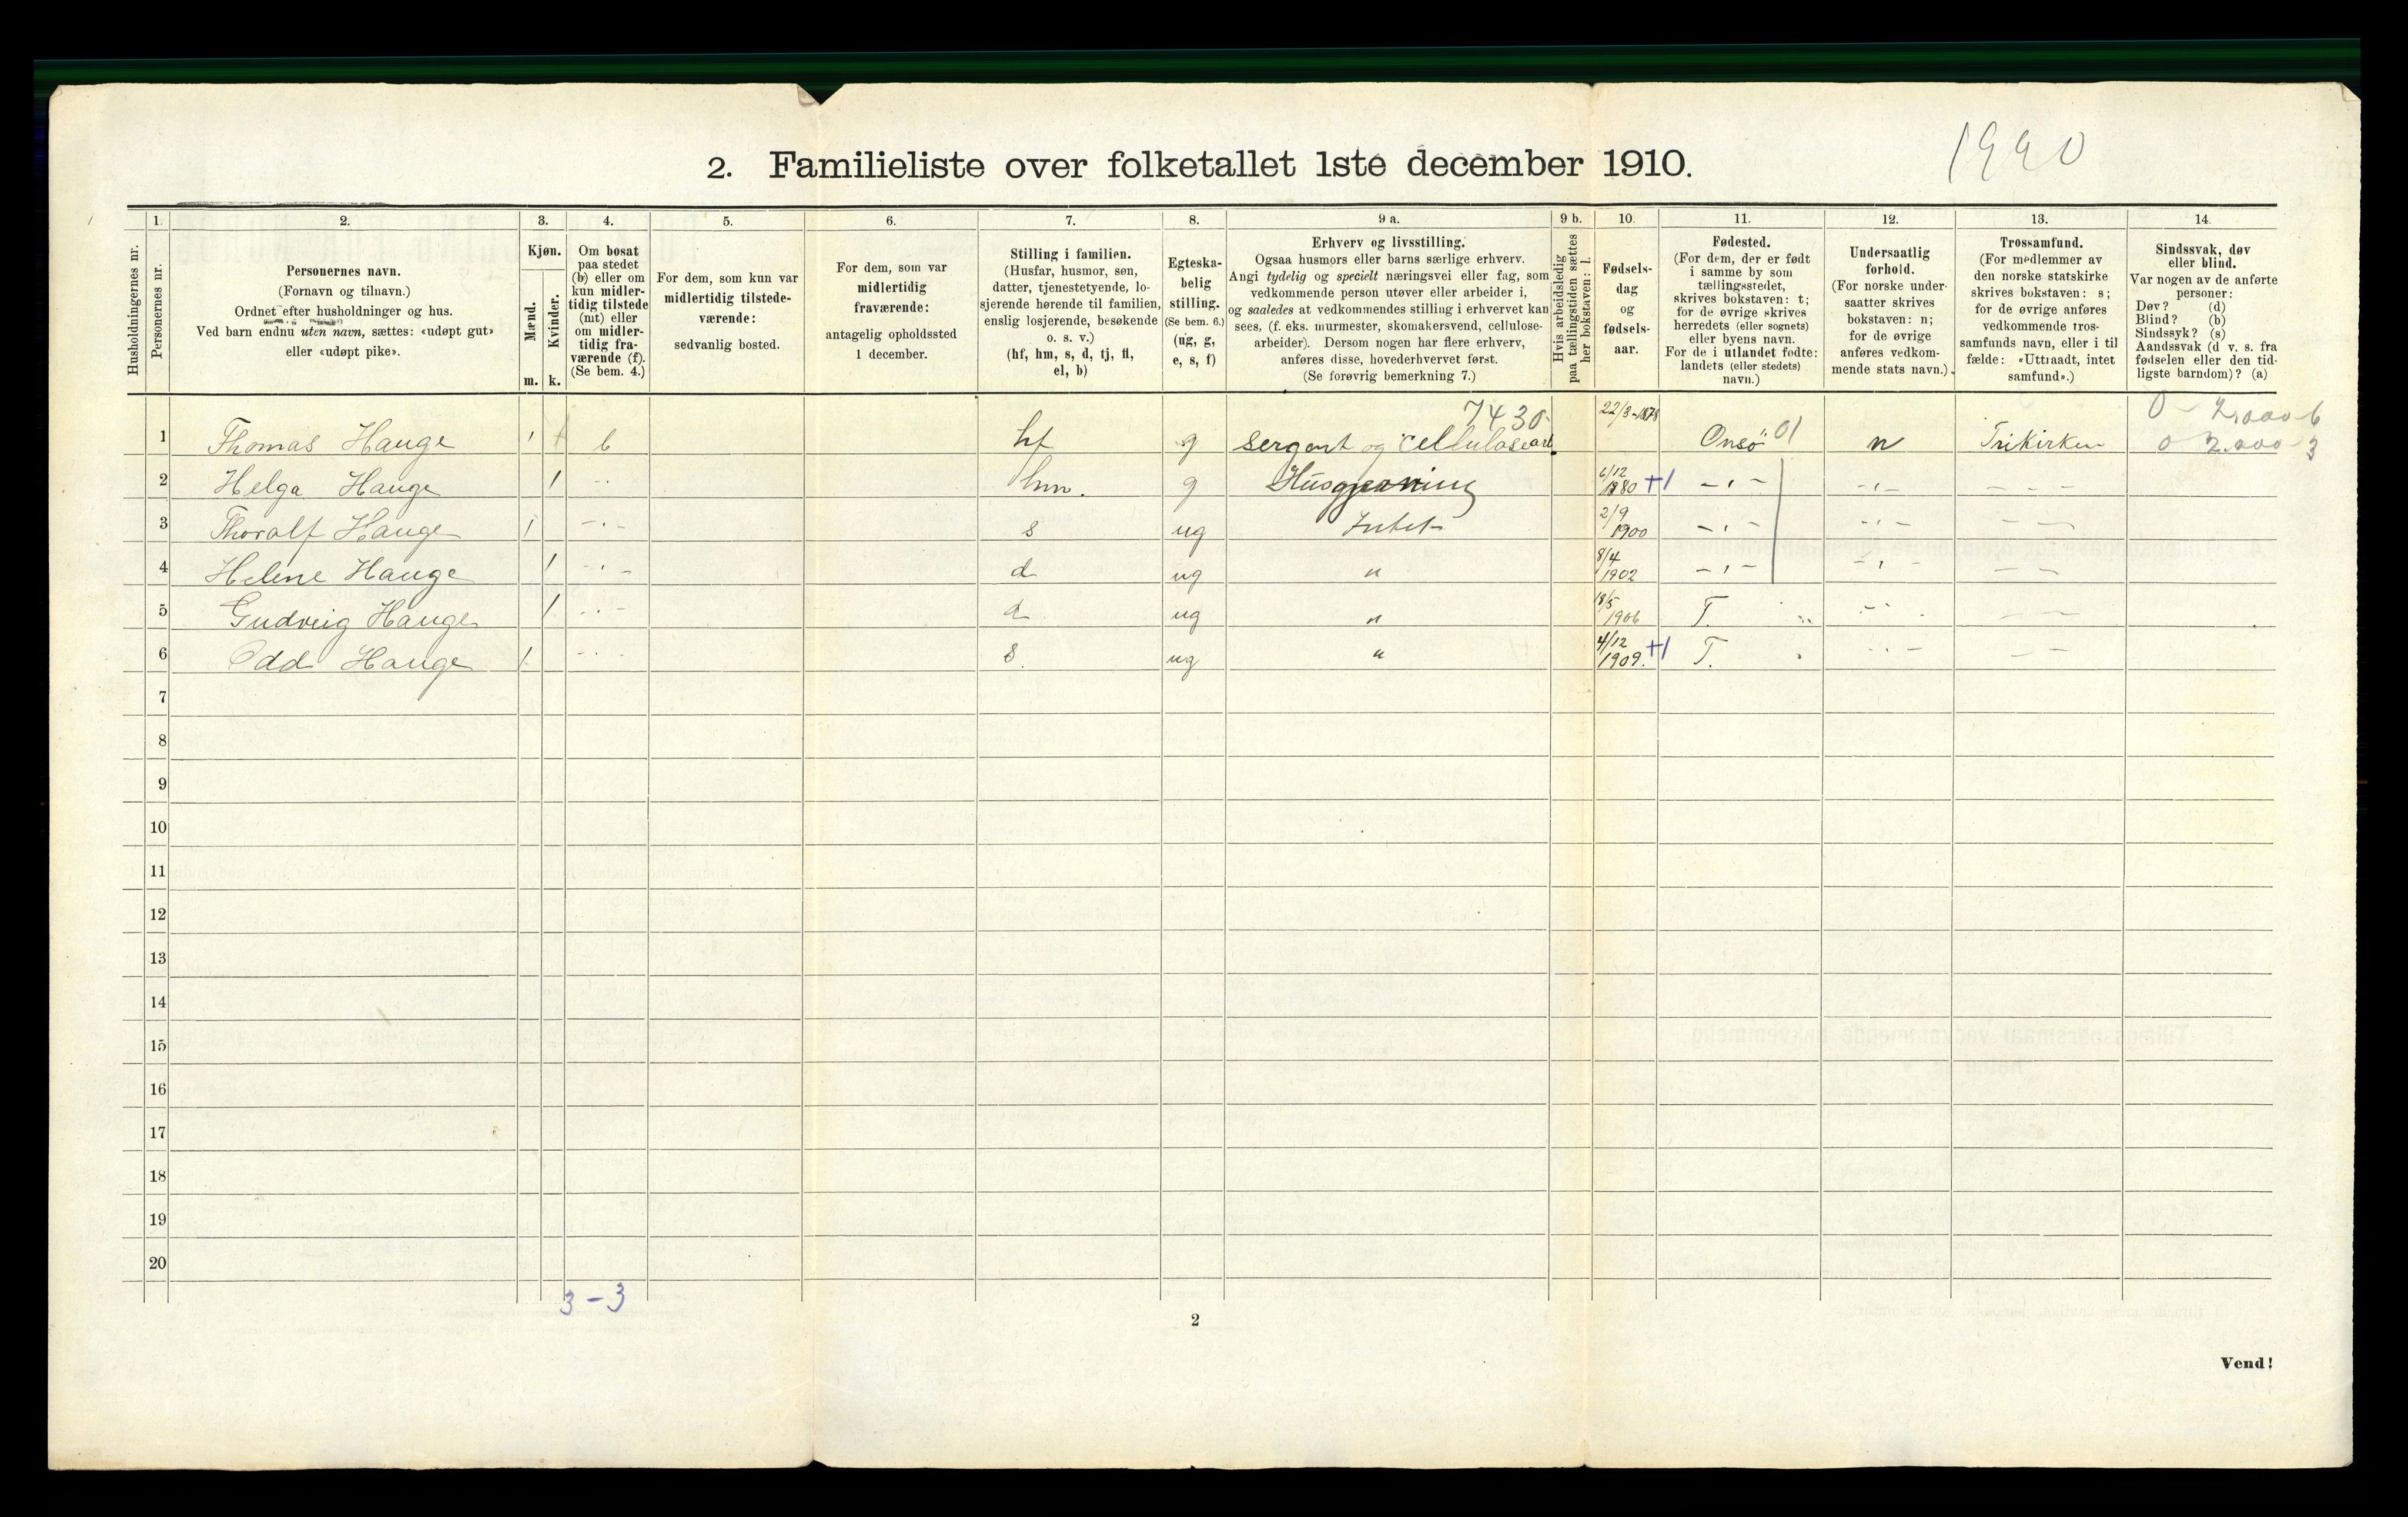 1990
2. Familieliste over folketallet 1ste december 1910.
Husholdningernes nr.
1. Personernes nr.
2. Personernes navn.
(Fornavn og tilnavn.)
Ordnet efter husholdninger og hus.
Ved barn endnu uten navn, sættes: «udøpt gut»
eller «udøpt pike».
3. Kjøn.
Mænd. m.
Kvinder. k.
4. Om bosat
paa stedet
(b) eller om
kun midler-
tidig tilstede
(mt) eller
om midler-
tidig fra-
værende (f).
(Se bem. 4.)
5. For dem, som kun var
midlertidig tilstede-
værende:
sedvanlig bosted.
6. For dem, som var
midlertidig
fraværende:
antagelig opholdssted
1 december.
7. Stilling i familien.
(Husfar, husmor, søn,
datter, tjenestetyende, lo-
sjerende hørende til familien,
enslig losjerende, besøkende
o. s. v.)
(hf, hm, s, d, tj, fl,
el, b)
8. Egteska-
belig
stilling.
(Se bem. 6.)
(ug, g,
e, s, f)
9 a. Erhverv og livsstilling.
Ogsaa husmors eller barns særlige erhverv.
Angi tydelig og specielt næringsvei eller fag, som
vedkommende person utøver eller arbeider i,
og saaledes at vedkommendes stilling i erhvervet kan
sees, (f. eks. murmester, skomakersvend, cellulose-
arbeider). Dersom nogen har flere erhverv,
anføres disse, hovederhvervet først.
(Se forøvrig bemerkning 7.)
9 b. Hvis arbeidsledig
paa tællingstiden sættes
her bokstaven: l.
10. Fødsels-
dag
og
fødsels-
aar.
11. Fødested.
(For dem, der er født
i samme by som
tællingsstedet,
skrives bokstaven: t;
for de øvrige skrives
herredets (eller sognets)
eller byens navn.
For de i utlandet fødte:
landets (eller stedets)
navn.)
12. Undersaatlig
forhold.
(For norske under-
saatter skrives
bokstaven: n;
for de øvrige
anføres vedkom-
mende stats navn.)
13. Trossamfund.
(For medlemmer av
den norske statskirke
skrives bokstaven: s;
for de øvrige anføres
vedkommende tros-
samfunds navn, eller i til
fælde: «Uttraadt, intet
samfund».)
14. Sindssvak, døv
eller blind.
Var nogen av de anførte
personer:
Døv? (d)
Blind? (b)
Sindssyk? (s)
Aandssvak (d v. s. fra
fødselen eller den tid-
ligste barndom)? (a)
7430 0 - 2.000-6
1 Thomas Hauge 1 b hf g sergent og cellulosearb. 22/3-1878 Onsø 01 n Frikirken 0 2.000-3
2 Helga Hauge 1 -"- hm. g Husgjerning 6/12 1880 +1 -"- -"- - - -
3 Thoralf Hauge 1 -"- s ug Intet 2/9 1900 -"- -"- - -
4 Helene Hauge 1 -"- d ug " 8/4 1902 -"- -"- - -
5 Gudveig Hauge 1 -"- d ug " 18/5 1906 T. -"- - -
6 Odd Hauge 1 -"- s. ug " 4/12 1909. +1 T. -"- - -
7
8
9
10
11
12
13
14
15
16
17
18
19
20
3 - 3
2
Vend!